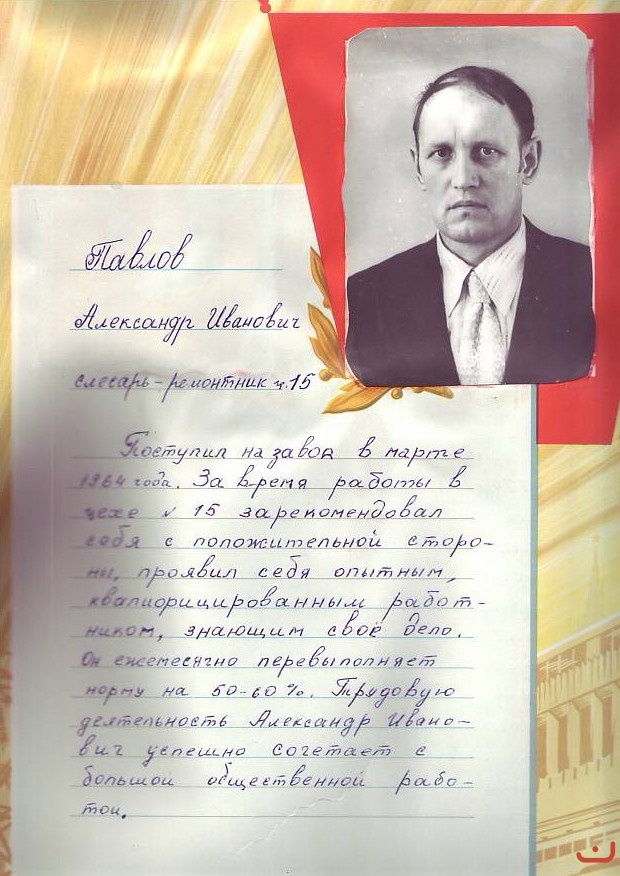 Павлов
Александр Иванович
слесарь-ремонтник ц.15
Поступил на завод в марте
1964 года. За время работы в
цехе № 15 зарекомендовал
себя с положительной сторо-
ны, проявил себя опытным,
квалифицированным работ-
ником, знающим своё дело.
Он ежемесячно перевыполняет
норму на 50-60%. Трудовую
деятельность Александр Ивано-
вич успешно сочетает с
большой общественной рабо-
той.